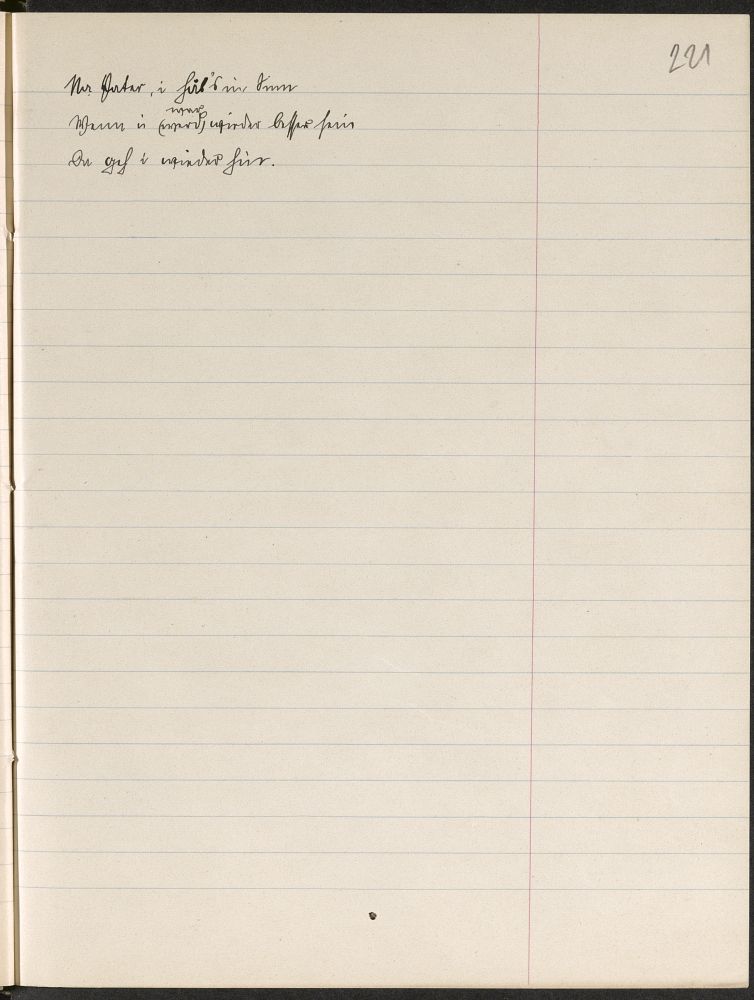 221
Na Vater, i hab's im Sinn
Wenn i (werd) wieder besser sein
Da geh i wieder hin.